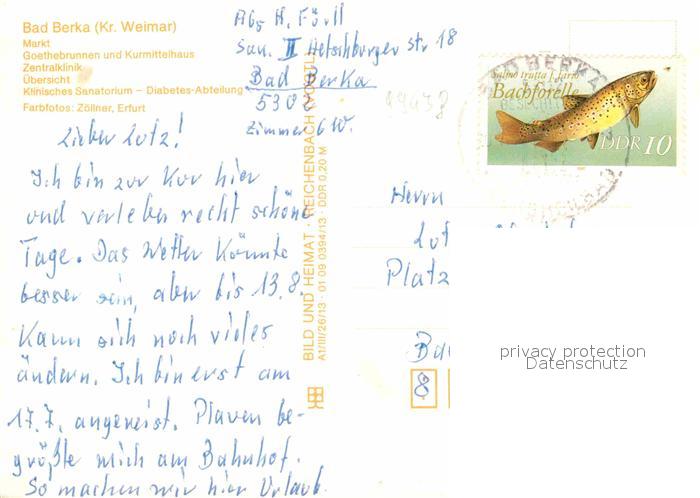 Bad Berka (Kr. Weimar)
Markt
Goethebrunnen und Kurmittelhaus
Zentralklinik
Übersicht
Klinisches Sanatorium – Diabetes-Abteilung
Farbfotos: Zöllner, Erfurt
Abs H.
San. II Hetschburger Str 18
Bad Berka
5302
Zimmer 6 W.
49438
Salmo trutta f. fario
Bachforelle
DDR 10
BAD BERKA
Lieber Lotz!
Ich bin zur Kur hier
und verlebe recht schöne
Tage. Das Wetter könnte
besser sein, aber bis 13.8.
kann sich noch vieles
ändern. Ich bin erst am
17.7. angereist. Plaven be-
grüßte mich am Bahnhof.
So machen wir hier Urlaub.
BILD UND HEIMAT · REICHENBACH (VOGTL)
A1/III/26/13 · 01 09 0394/13 · DDR 0,20 M
Herrn
Lot
Platz
Ba
8
privacy protection
Datenschutz